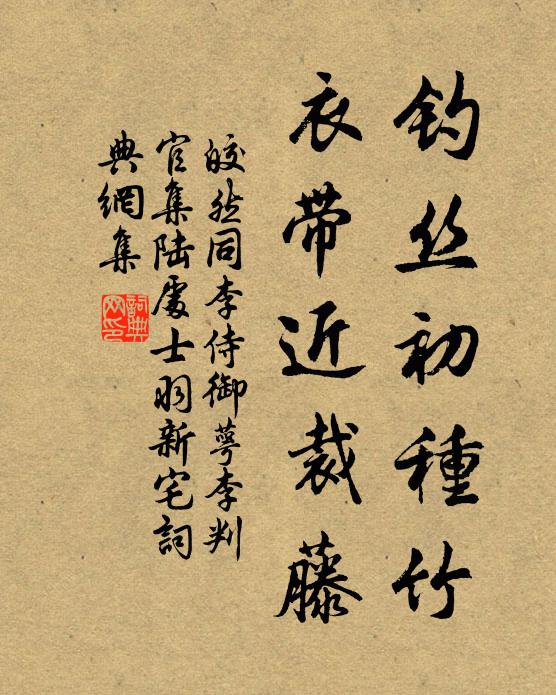 钓丝初種竹
衣带近裁藤
皎然同李侍御萼李判
官集陆處士羽新宅詞
典網集
詞典网印